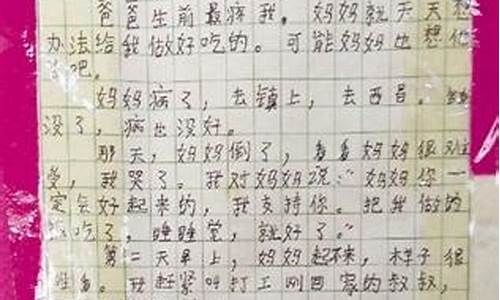 爸爸生前最疼我。妈妈就天天想
办法给我做好吃的。可能妈妈也想他
了吧。
妈妈病了，去镇上，去西昌。钱
没了，病也没好。
那天，妈妈倒了，看看妈妈很难
受，我哭了。我对妈妈说：“妈妈你一
定会好起来的，我支持你。把我做的
饭吃了，睡睡觉，就好了。”
第二天早上，妈妈起不来，样子很
我赶紧叫打工回家的叔叔，